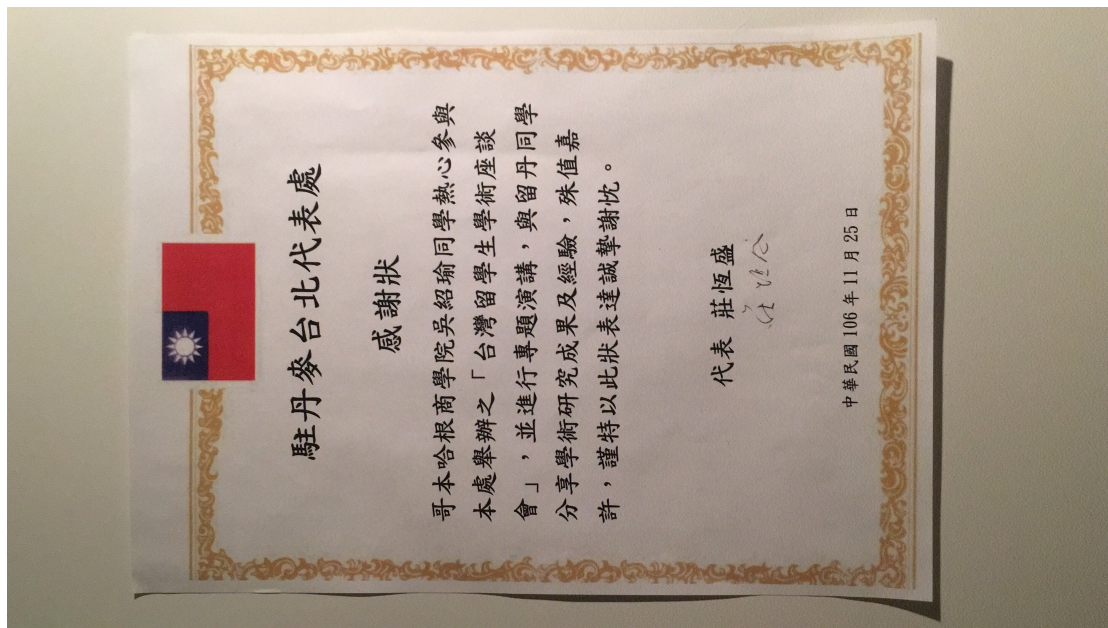 駐丹麥台北代表處
感謝狀
哥本哈根商學院吳紹瑜同學熱心參與
本處舉辦之「台灣留學生學術座談
會」，並進行專題演講，與留丹同學
分享學術研究成果及經驗，殊值嘉
許，謹特以此狀表達誠摯謝忱。
代表 莊恆盛
中華民國 106 年 11 月 25 日